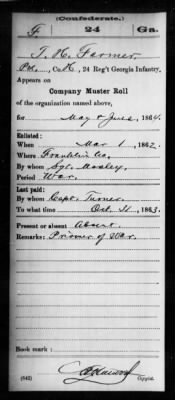 (Confederate.)
F 24 Ga.
T. H. Farmer
Pvt., Co. K, 24 Reg't Georgia Infantry.
Appears on
Company Muster Roll
of the organization named above,
for May & June, 1864.
Enlisted:
When Mar 1, 1862.
Where Franklin Co.
By whom Sgt. Mosley
Period War.
Last paid:
By whom Capt. Turner
To what time Oct. 31, 1863.
Present or absent Absent.
Remarks: Prisoner of War.
Book mark:
(642) Copyist.